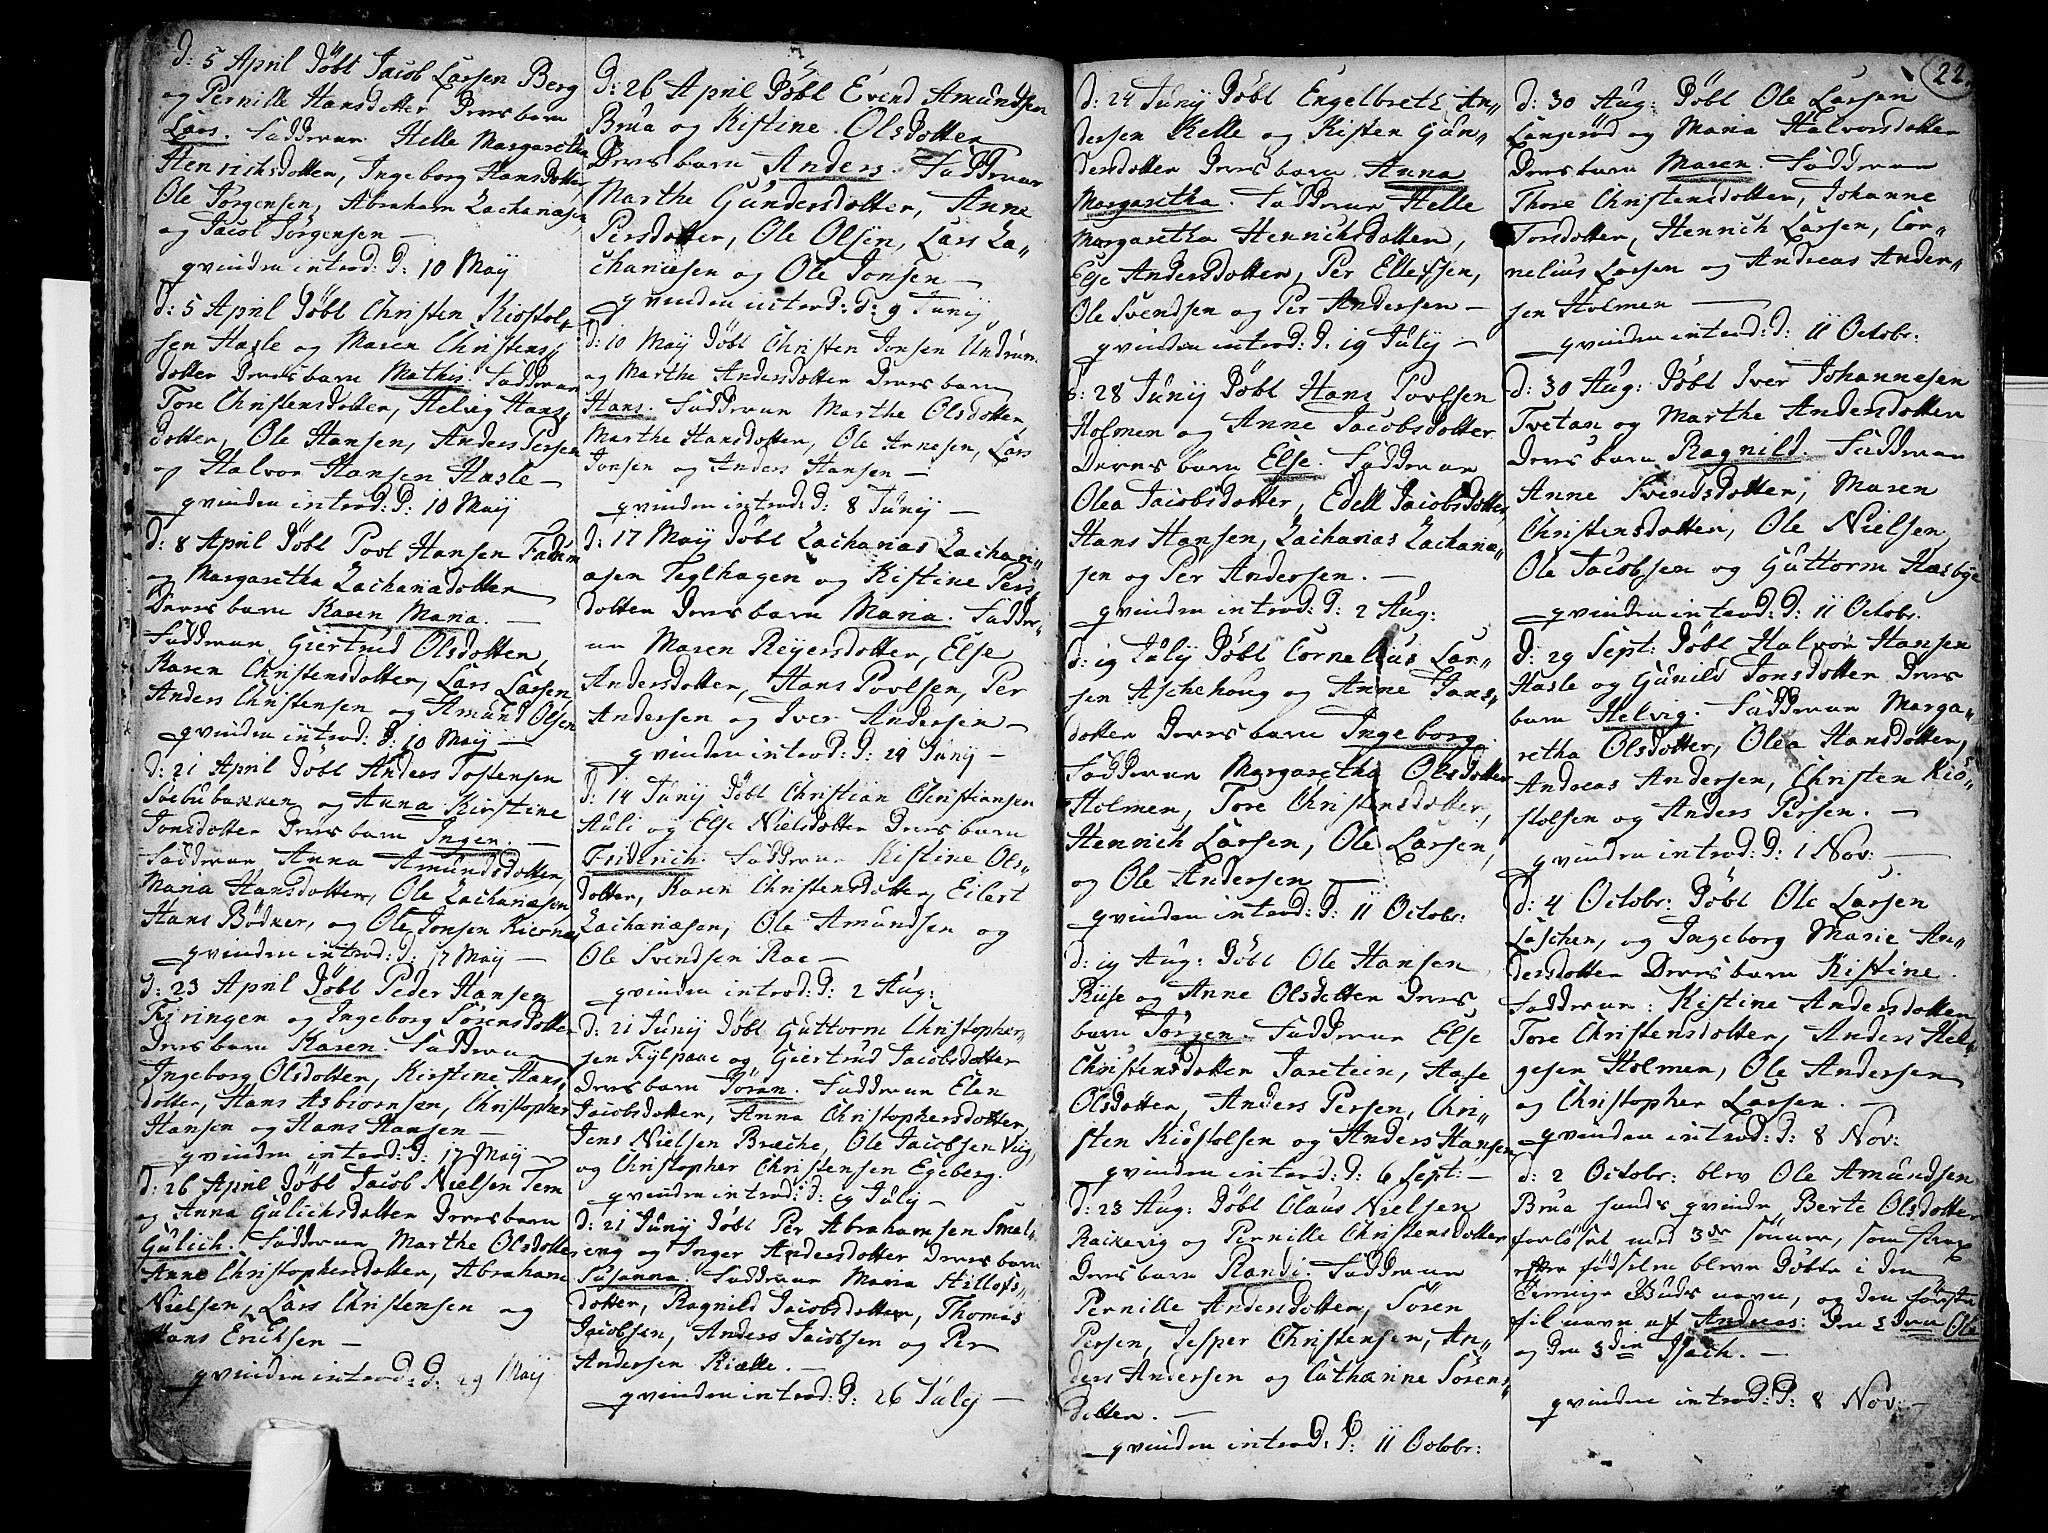 d: 5 April döbt Jacob Larsen Berg
og Pernille Hansdotter deres barn
Lars. Fadderne Helle Margaretha
Henrichsdotter, Ingeborg Hansdotter,
Ole Jörgensen, Abraham Zachariæsen
og Jacob Jörgensen —
qvinden introd: d: 10 Maij
d: 5 April döbt Christen Kiöstol„
sen Hasle og Maren Christens„
dotter deres barn Mathis. Fadderne
Tore Christensdotter, Helvig Hans„
dotter, Ole Hansen, Anders Persen
og Halvor Hansen Hasle —
qvinden introd: d: 10 Maij
d: 8 April döbt Povl Hansen Fadum
og Margaretha Zachariædotter
deres barn Karen Maria. —
Fadderne Giertrud Olsdotter,
Karen Christensdotter, Lars Larsen,
Anders Christensen og Amund Olsen
qvinden introd: d: 10 Maij —
d: 21 April döbt Anders Tostensen
Svebubakken og Anna Kirstine
Jonsdotter deres barn Inger. —
Fadderne Anna Amundsdotter,
Maria Hansdotter, Ole Zachariæsen
Hans Bödker, og Ole Jonsen Kiernes
qvinden introd: d: 17 Maij —
d: 23 April döbt Peder Hansen
Fjringen og Ingeborg Sörensdotter
deres barn Karen. Fadderne
Ingeborg Olsdotter, Kirstine Hans„
dotter, Hans Asbiörnsen, Christopher
Hansen og Hans Hansen —
qvinden introd: d: 17 Maij —
d: 26 April döbt Jacob Nielsen Tem
og Anna Gulichsdotter deres barn
Gulich. Fadderne Marthe Olsdotter
Anne Christophersdotter, Abraham
Nielsen, Lars Christensen og
Hans Ericksen —
qvinden introd: d: 29 Maij
d: 26 April döbt Evend Amundsen
Brua og Kistine Olsdotter
deres barn Anders. Fadderne
Marthe Gundersdotter, Anne
Persdotter, Ole Olsen, Lars Za„
chariæsen og Ole Jonsen —
qvinden introd: d: 9 Junij
d: 10 Maij döbt Christen Jonsen Undrum
og Marthe Andersdotter deres barn
Hans. Fadderne Marthe Olsdotter,
Marthe Hansdotter, Ole Arnesen, Lars
Jonsen og Anders Hansen —
qvinden introd: d: 8 Junij —
d: 17 Maij döbt Zacharias Zachari„
æsen Teglhagen og Kistine Pers„
dotter deres barn Maria. Fadder„
ne Maren Reyersdotter, Else
Andersdotter, Hans Povlsen, Per
Andersen og Iver Andersen —
qvinden introd: d: 24 Junij —
d: 14 Junij döbt Christian Christiansen
Auli og Else Nielsdotter deres barn
Friderich. Fadderne Kistine Ols„
dotter, Karen Christensdotter, Eilert
Zachariæsen, Ole Amundsen og
Ole Svendsen Rae —
qvinden introd: d: 2 Aug:
d: 21 Junij döbt Guttorm Christopher„
sen Fylpaae og Giertrud Jacobsdotter
deres barn Jöran. Fadderne Elen
Jacobsdotter, Anna Christophersdotter,
Jens Nielsen Bræche, Ole Jacobsen Viig,
og Christopher Christensen Egeberg.
qvinden introd: d: 19 Julij —
d: 21 Junij döbt Per Abrahamsen Smal„
reng og Inger Andersdotter deres barn
Susanna. Fadderne Maria Hillofs„
dotter, Ragnild Jacobsdotter, Thomas
Jacobsen, Anders Jacobsen og Per
Andersen Kiælle. —
qvinden introd: d: 26 Julij —
d: 24 Junij döbt Engelbreth An„
dersen Kelle og Kisten Gun„
dersdotter deres barn Anna
Margaretha. Fadderne Helle
Margaretha Henrichsdotter,
Else Andersdotter, Per Ellefsen,
Ole Svendsen og Per Andersen —
qvinden introd: d: 19 Julij —
d: 28 Junij döbt Hans Povlsen
Holmen og Anne Jacobsdotter
deres barn Else. Fadderne
Olea Jacobsdotter, Edell Jacobsdotter,
Hans Hansen, Zacharias Zachariæ„
sen og Per Andersen. —
qvinden introd: d: 2 Aug:
d: 19 Julij döbt Cornelius Lar„
sen Aschehoug og Anne Jans„
dotter deres barn Ingeborg.
Fadderne Margaretha Olsdotter
Holmen, Tore Christensdotter,
Henrich Larsen, Ole Larsen,
og Ole Andersen —
qvinden introd: d: 11 Octobr:
d: 19 Aug: döbt Ole Hansen
Riise og Anne Olsdotter deres
barn Jörgen. Fadderne Else
Christensdotter Jaretein, Aase
Olsdotter, Anders Persen, Chri„
sten Kiöstolsen og Anders Hansen
qvinden introd: d: 6 Sept: —
d: 23 Aug: döbt Claus Nielsen
Rakkevig og Pernille Christensdotter
deres barn Randi. Fadderne
Pernille Andersdotter, Sören
Persen, Jesper Christensen, An„
ders Andersen og Cathærine Sörens„
dotter. —
qvinden introd: d: 11 Octobr:
22.
d: 30 Aug: döbt Ole Larsen
Langeröd og Maria Halvorsdotter
deres barn Maren. Fadderne
Thore Christensdotter, Johanne
Torsdotter, Henrich Larsen, Cor„
nelius Larsen og Andreas Ander„
sen Holmen —
qvinden introd: d: 11 Octobr:
d: 30 Aug: döbt Iver Johannesen
Tvetan og Marthe Andersdotter
deres barn Ragnild. Fadderne
Anne Svendsdotter, Maren
Christensdotter, Ole Nielsen,
Ole Jacobsen og Guttorm Hæsbye
qvinden introd: d: 11 Octobr:
d: 29 Sept: döbt Halvor Hansen
Hasle og Gunild Jonsdotter deres
barn Helvig. Fadderne Marga„
retha Olsdotter, Olea Hansdotter,
Andreas Andersen, Christen Kiö„
stolsen og Anders Persen. —
qvinden introd: d: 1 Nov: —
d: 4 Octobr: döbt Ole Larsen
Laschen, og Ingeborg Marie An„
dersdotter deres barn Kistine.
Fadderne: Kistine Andersdotter,
Tore Christensdotter, Anders Hel„
gesen Holmen, Ole Andersen
og Christopher Larsen. —
qvinden introd: d: 8 Nov:
d: 2 Octobr: blev Ole Amundsen
Brua hands qvinde Berte Olsdotter
forlöset med 3de sönner, som strax
efter födselen bleve döbte i den
Treenige Guds navn, og den förste
fik navn af Andreas: den 2den Ole
og den 3die Isach. —
qvinden introd: d: 8 Nov: —